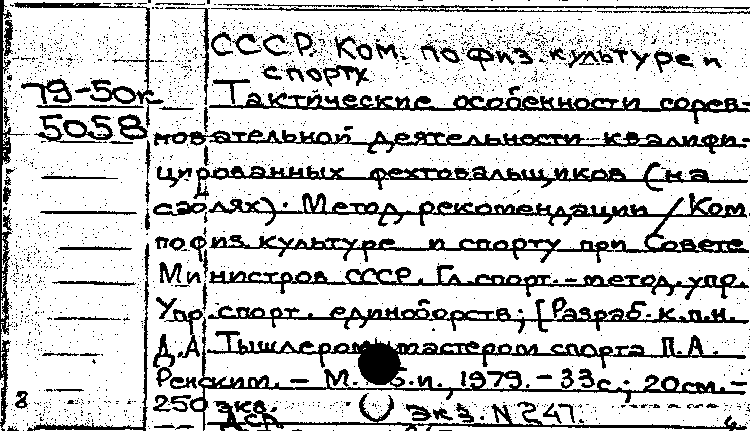 СССР. Ком. по физ. культуре и
спорту
79-50к Тактические особенности сорев-
5058 новательной деятельности квалифи-
цированных фехтовальщиков (на
саблях). Метод. рекомендации / Ком
по физ. культуре и спорту при Совете
Министров СССР. Гл. спорт.-метод. упр.
Упр. спорт. единоборств; [Разраб. к.п.н.
Д.А. Тышлером мастером спорта П.А.
Ренским. - М. Б.и., 1979. - 33с.; 20см. -
8 250 экз.
Экз. N 247.